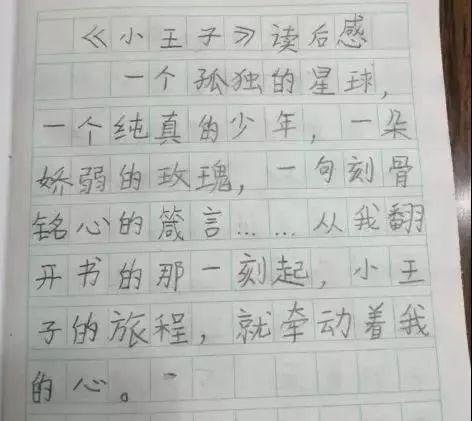 《小王子》读后感
一个孤独的星球，
一个纯真的少年，一朵
娇弱的玫瑰，一句刻骨
铭心的箴言……从我翻
开书的那一刻起，小王
子的旅程，就牵动着我
的心。